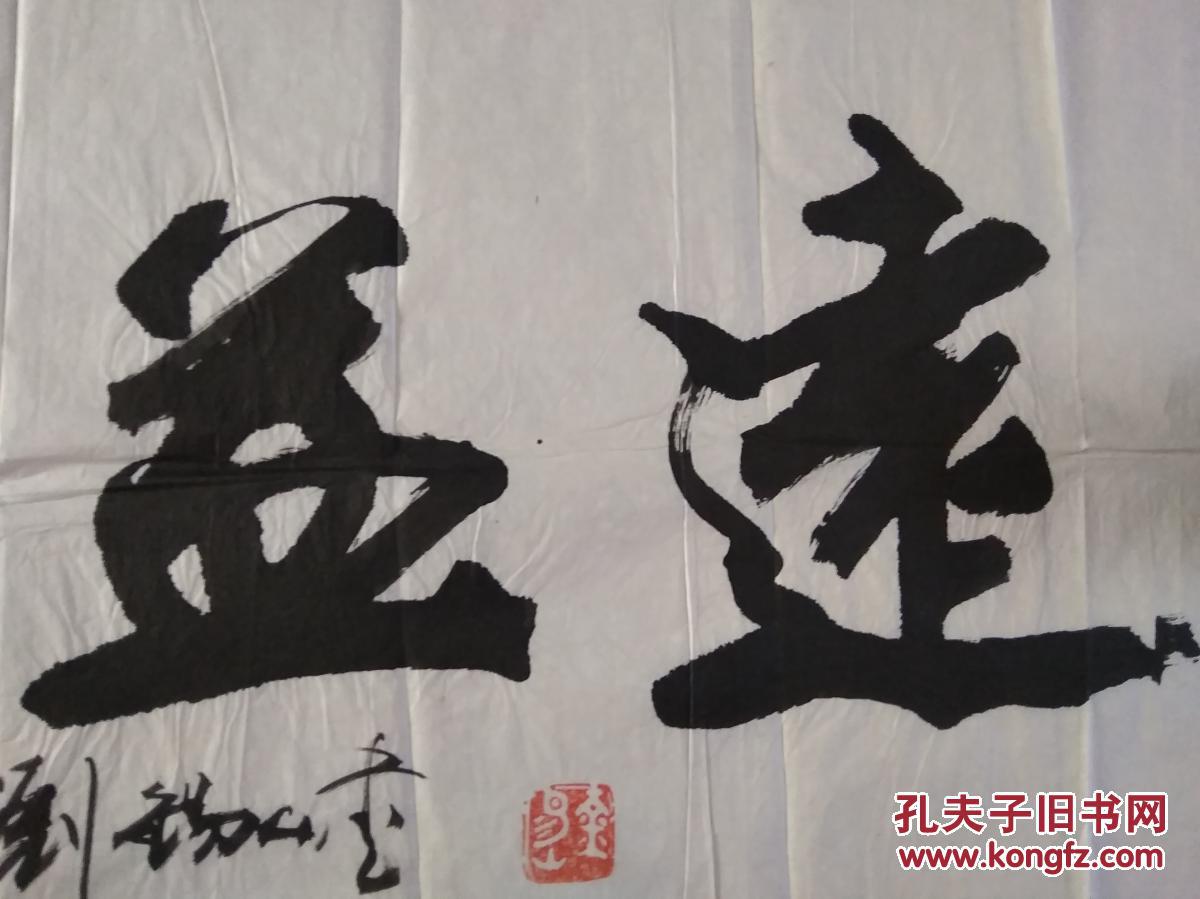 益遠
劉錫山書
孔夫子旧书网
www.kongfz.com